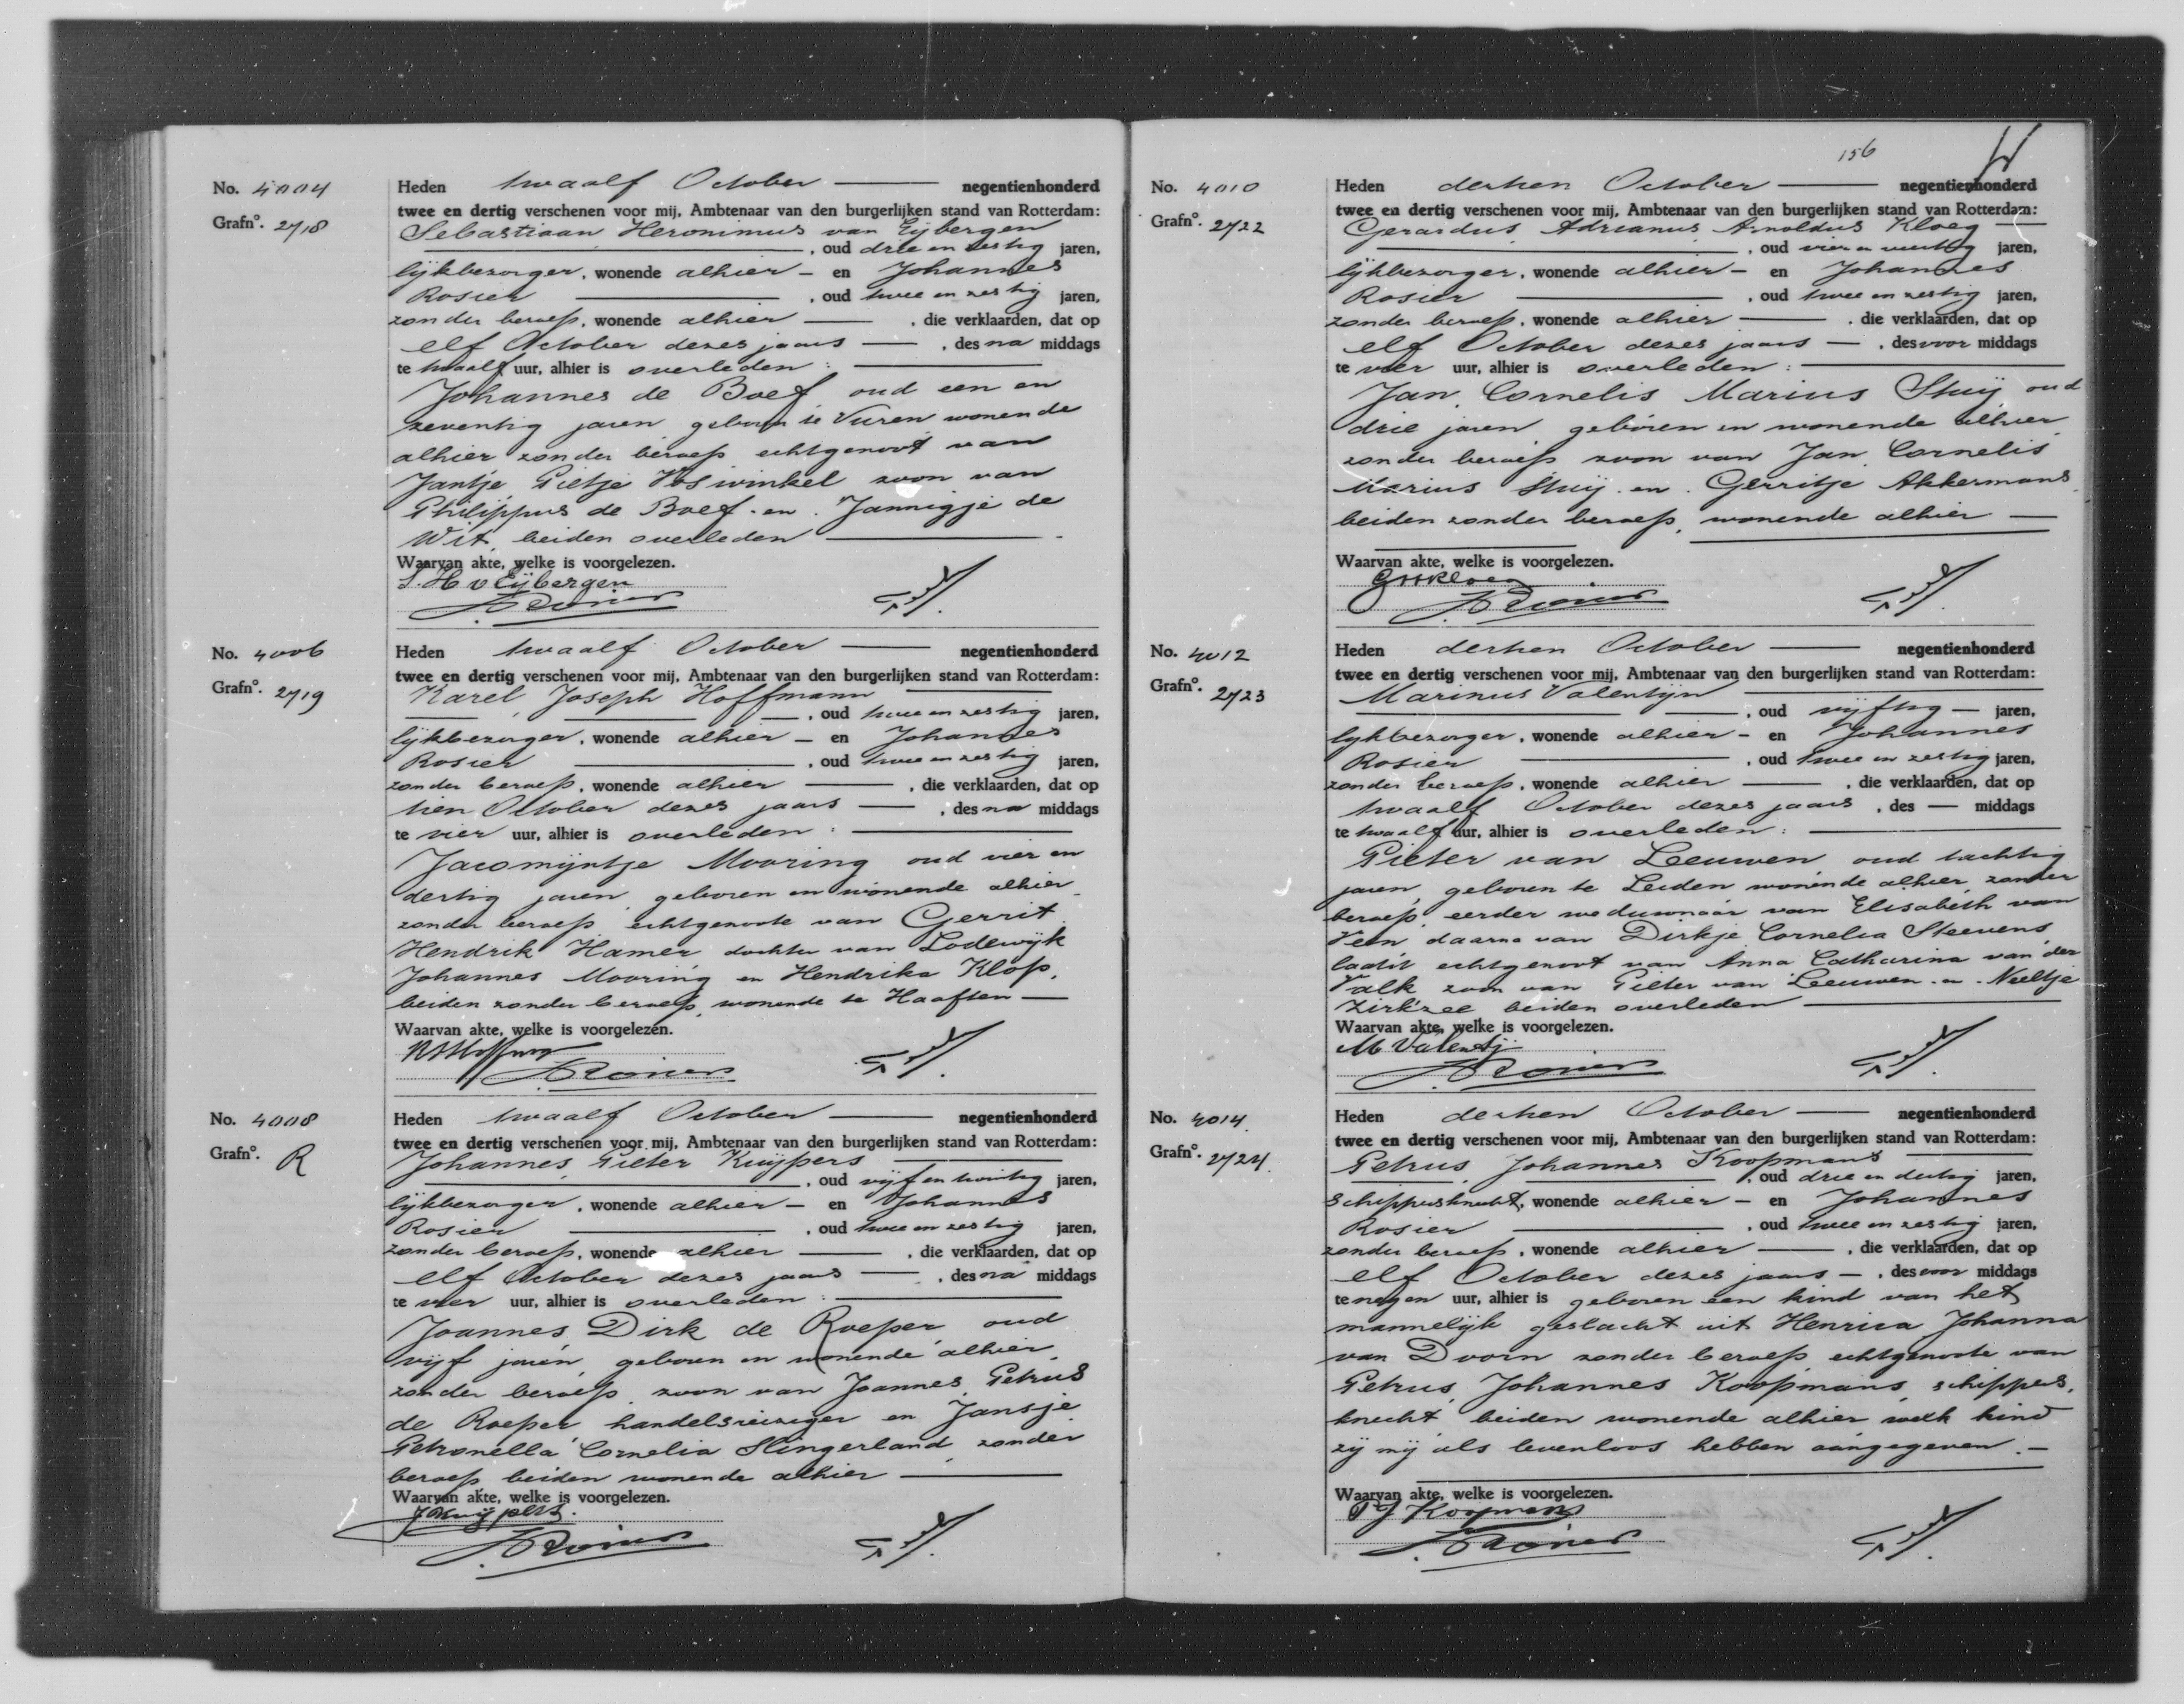 No. 4004
Grafno. 2718
Heden twaalf October negentienhonderd
twee en dertig verschenen voor mij, Ambtenaar van den burgerlijken stand van Rotterdam:
Sebastiaan Heronimus van Eijbergen
, oud drie en zestig jaren,
lijkbezorger, wonende alhier – en Johannes
Rosier , oud twee en zestig jaren,
zonder beroep, wonende alhier , die verklaarden, dat op
elf October dezes jaars , des na middags
te twaalf uur, alhier is overleden :
Johannes de Boef, oud een en
zeventig jaren, geboren te Vuren wonende
alhier zonder beroep echtgenoot van
Jantje Pietje Voswinkel zoon van
Philippus de Boef en Jannigje de
Wit, beiden overleden
Waarvan akte, welke is voorgelezen.
S. H v Eijbergen
J. Rosier
No. 4006
Grafno. 2719
Heden twaalf October negentienhonderd
twee en dertig verschenen voor mij, Ambtenaar van den burgerlijken stand van Rotterdam:
Karel Joseph Hoffmann
, oud twee en zestig jaren,
lijkbezorger, wonende alhier – en Johannes
Rosier , oud twee en zestig jaren,
zonder beroep, wonende alhier , die verklaarden, dat op
tien October dezes jaars , des na middags
te vier uur, alhier is overleden :
Jacomijntje Mooring oud vier en
dertig jaren, geboren en wonende alhier
zonder beroep echtgenoote van Gerrit
Hendrik Hamer dochter van Lodewijk
Johannes Mooring en Hendrika Klop,
beiden zonder beroep, wonende te Haaften
Waarvan akte, welke is voorgelezen.
J. Rosier
No. 4008
Grafno. R
Heden twaalf October negentienhonderd
twee en dertig verschenen voor mij, Ambtenaar van den burgerlijken stand van Rotterdam:
Johannes Pieter Kuijpers
, oud vijf en twintig jaren,
lijkbezorger, wonende alhier – en Johannes
Rosier , oud twee en zestig jaren,
zonder beroep, wonende alhier , die verklaarden, dat op
elf October dezes jaars , des na middags
te vier uur, alhier is overleden :
Joannes Dirk de Roeper, oud
vijf jaren, geboren en wonende alhier,
zonder beroep, zoon van Joannes Petrus
de Roeper handelsreiziger en Jansje
Petronella Cornelia Slingerland zonder
beroep beiden wonende alhier
Waarvan akte, welke is voorgelezen.
J Kuijpers.
J. Rosier
156
No. 4010
Grafno. 2722
Heden dertien October negentienhonderd
twee en dertig verschenen voor mij, Ambtenaar van den burgerlijken stand van Rotterdam:
Gerardus Adrianus Arnoldus Kloeg
, oud vier en veertig jaren,
lijkbezorger, wonende alhier – en Johannes
Rosier , oud twee en zestig jaren,
zonder beroep, wonende alhier , die verklaarden, dat op
elf October dezes jaars – , des voor middags
te vier uur, alhier is overleden :
Jan Cornelis Marius Stuij, oud
drie jaren, geboren en wonende alhier
zonder beroep zoon van Jan Cornelis
Marius Stuij en Gerritje Akkermans,
beiden zonder beroep, wonende alhier
Waarvan akte, welke is voorgelezen.
J. Rosier
No. 4012
Grafno. 2723
Heden dertien October negentienhonderd
twee en dertig verschenen voor mij, Ambtenaar van den burgerlijken stand van Rotterdam:
Marinus Valentijn
, oud vijftig – jaren,
lijkbezorger, wonende alhier – en Johannes
Rosier , oud twee en zestig jaren,
zonder beroep, wonende alhier , die verklaarden, dat op
twaalf October dezes jaars , des — middags
te twaalf uur, alhier is overleden :
Pieter van Leeuwen oud tachtig
jaren, geboren te Leiden wonende alhier, zonder
beroep eerder weduwnaar van Elisabeth van
Veen daarna van Dirkje Cornelia Steevens,
laatst echtgenoot van Anna Catharina van der
Valk zoon van Pieter van Leeuwen en Neeltje
Zirkzee beiden overleden
Waarvan akte, welke is voorgelezen.
M Valentij
J. Rosier
No. 4014.
Grafno. 2724.
Heden dertien October negentienhonderd
twee en dertig verschenen voor mij, Ambtenaar van den burgerlijken stand van Rotterdam:
Petrus Johannes Koopmans
, oud drie en dertig jaren,
schippersknecht, wonende alhier – en Johannes
Rosier , oud twee en zestig jaren,
zonder beroep, wonende alhier , die verklaarden, dat op
elf October dezes jaars – , des voor middags
te negen uur, alhier is geboren een kind van het
mannelijk geslacht uit Henrica Johanna
van Doorn zonder beroep echtgenoote van
Petrus Johannes Koopmans, schippers,
knecht beiden wonende alhier welk kind
zij mij als levenloos hebben aangegeven. –
Waarvan akte, welke is voorgelezen.
P J Koopmans
J. Rosier